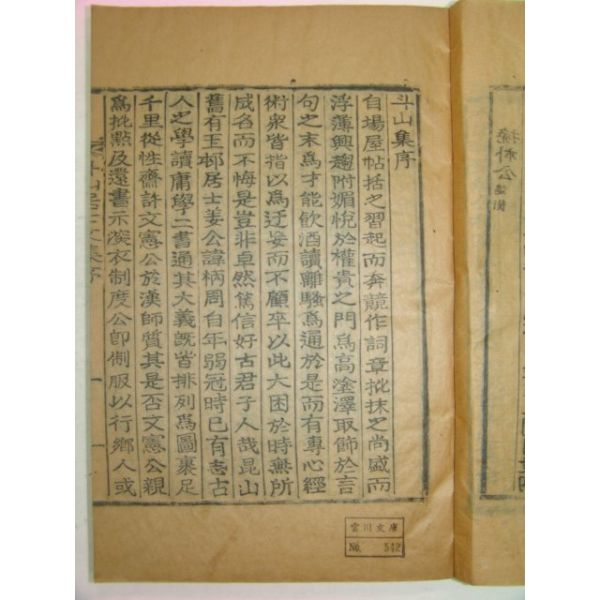 斗山集序
自場屋帖括之習起而奔競作詞章批抹之尚盛而
浮薄興趨附媚悅於權貴之門爲高塗澤取飾於言
句之末爲才能飮酒讀離騷爲通於是而有專心經
術衆皆指以爲迂妄而不顧卒以此大困於時無所
成名而不悔是豈非卓然篤信好古君子人哉昆山
舊有玉邨居士姜公諱柄周自年弱冠時已有志古
人之學讀庸學二書通其大義旣皆排列爲圖裹足
千里從性齋許文憲公於漢師質其是否文憲公親
爲批點及還書示深衣制度公卽制服以行鄕人或
斗山居士文集序
一
宮川文庫
No. 542